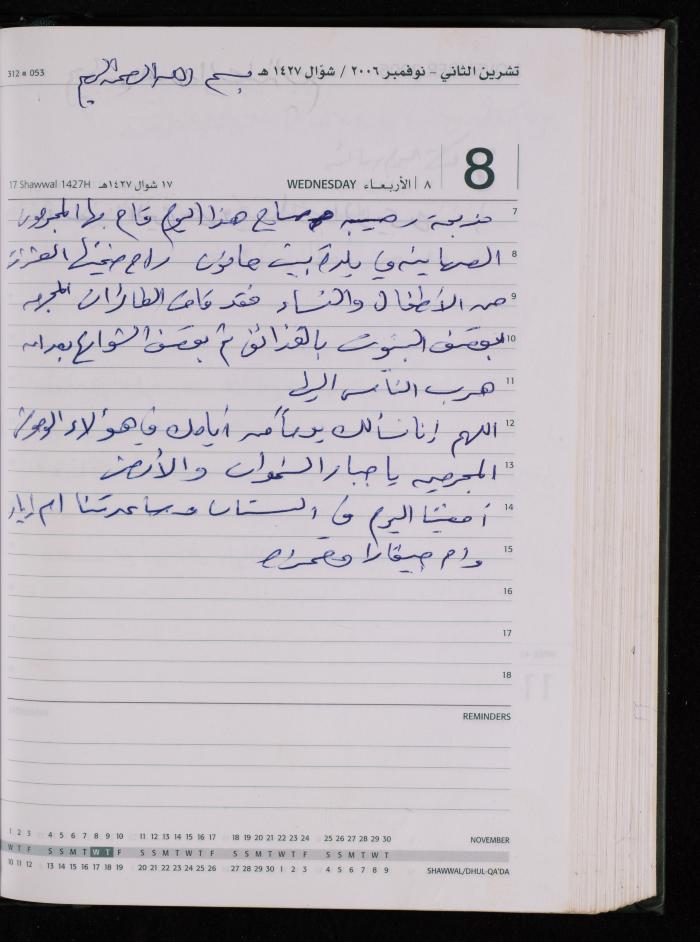 312 ▪ 053
تشرين الثاني - نوفمبر ٢٠٠٦ / شوّال ١٤٢٧ هـ
بسم الله الرحمن الرحيم
8
17 Shawwal 1427H ١٧ شوال ١٤٢٧هـ WEDNESDAY الأربعاء ٨
7 مذبحة رهيبة صباح هذا اليوم قام بها المجرمون
8 الصهاينة في بلدة بيت حانون راح ضحيتها العشرات
9 من الأطفال والنساء فقد قامت الطائرات المجرمه
10 بقصف البيوت بالقذائف ثم بقصف الشوارع بعد ان
11 هرب الناس اليها
12 اللهم إنا نسألك يوماً من أيامك في هؤلاء
13 المجرمين يا جبار السموات والأرض
14 أمضينا اليوم في البستان وساعدتنا ام اياد
15 وام
16
17
18
REMINDERS
1 2 3 4 5 6 7 8 9 10 11 12 13 14 15 16 17 18 19 20 21 22 23 24 25 26 27 28 29 30 NOVEMBER
W T F S S M T W T F S S M T W T F S S M T W T F S S M T W T
10 11 12 13 14 15 16 17 18 19 20 21 22 23 24 25 26 27 28 29 30 1 2 3 4 5 6 7 8 9 SHAWWAL/DHUL-QA'DA